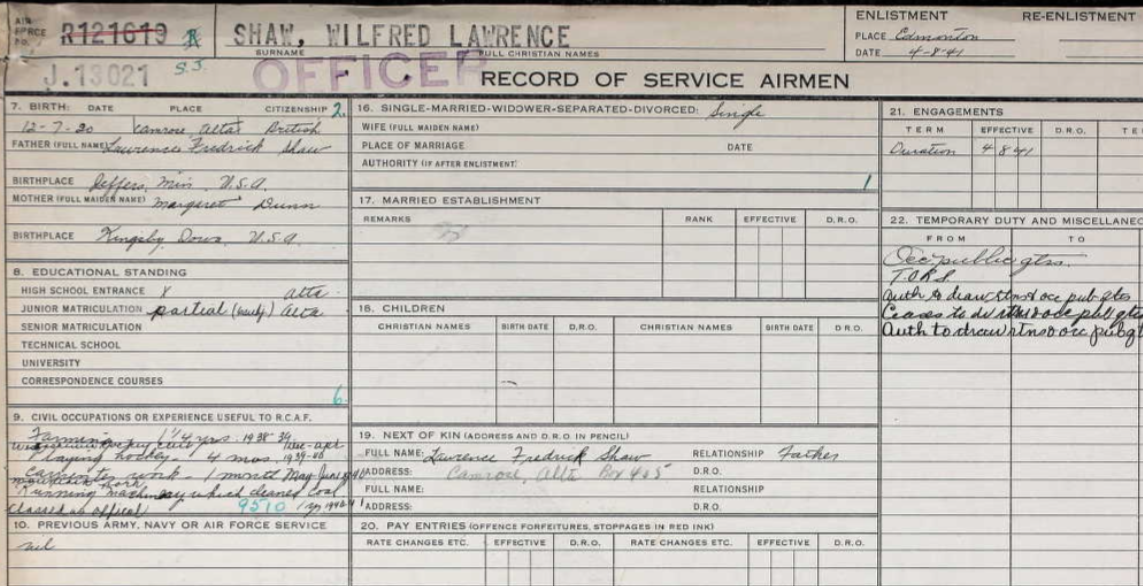 AIR FORCE NO. R121619 SHAW, WILFRED LAWRENCE
SURNAME FULL CHRISTIAN NAMES
J.13021 S.J. OFFICER RECORD OF SERVICE AIRMEN
ENLISTMENT RE-ENLISTMENT
PLACE Edmonton
DATE 4-8-41
7. BIRTH: DATE PLACE CITIZENSHIP 2
12-7-20 Camrose, Alta British
FATHER (FULL NAME) Lawrence Fredrick Shaw
BIRTHPLACE Jeffers, Min. U.S.A.
MOTHER (FULL MAIDEN NAME) Margaret Dunn
BIRTHPLACE U.S.A.
8. EDUCATIONAL STANDING
HIGH SCHOOL ENTRANCE X alta
JUNIOR MATRICULATION partial Alta
SENIOR MATRICULATION
TECHNICAL SCHOOL
UNIVERSITY
CORRESPONDENCE COURSES
6
9. CIVIL OCCUPATIONS OR EXPERIENCE USEFUL TO R.C.A.F.
Farming 1 1/4 yrs. 1938 39
Playing hockey - 4 mos. 1939-40
work - 1 month May-June
Running machinery which cleaned coal
classed as 9510
10. PREVIOUS ARMY, NAVY OR AIR FORCE SERVICE
nil
16. SINGLE-MARRIED-WIDOWER-SEPARATED-DIVORCED: Single
WIFE (FULL MAIDEN NAME)
PLACE OF MARRIAGE DATE
AUTHORITY (IF AFTER ENLISTMENT)
1
17. MARRIED ESTABLISHMENT
REMARKS RANK EFFECTIVE D.R.O.
18. CHILDREN
CHRISTIAN NAMES BIRTH DATE D.R.O. CHRISTIAN NAMES BIRTH DATE D.R.O.
19. NEXT OF KIN (ADDRESS AND D.R.O. IN PENCIL)
FULL NAME: Lawrence Fredrick Shaw RELATIONSHIP Father
ADDRESS: Camrose, Alta Box 405 D.R.O.
FULL NAME: RELATIONSHIP
ADDRESS: D.R.O.
20. PAY ENTRIES (OFFENCE FORFEITURES, STOPPAGES IN RED INK)
RATE CHANGES ETC. EFFECTIVE D.R.O. RATE CHANGES ETC. EFFECTIVE D.R.O.
21. ENGAGEMENTS
TERM EFFECTIVE D.R.O. TE
Duration 4 8 41
22. TEMPORARY DUTY AND MISCELLANEO
FROM TO
Occ public qtrs.
Auth to draw rtns occ pub qtrs
Ceases to dr rtns occ pub qtrs
Auth to draw rtns occ pub q